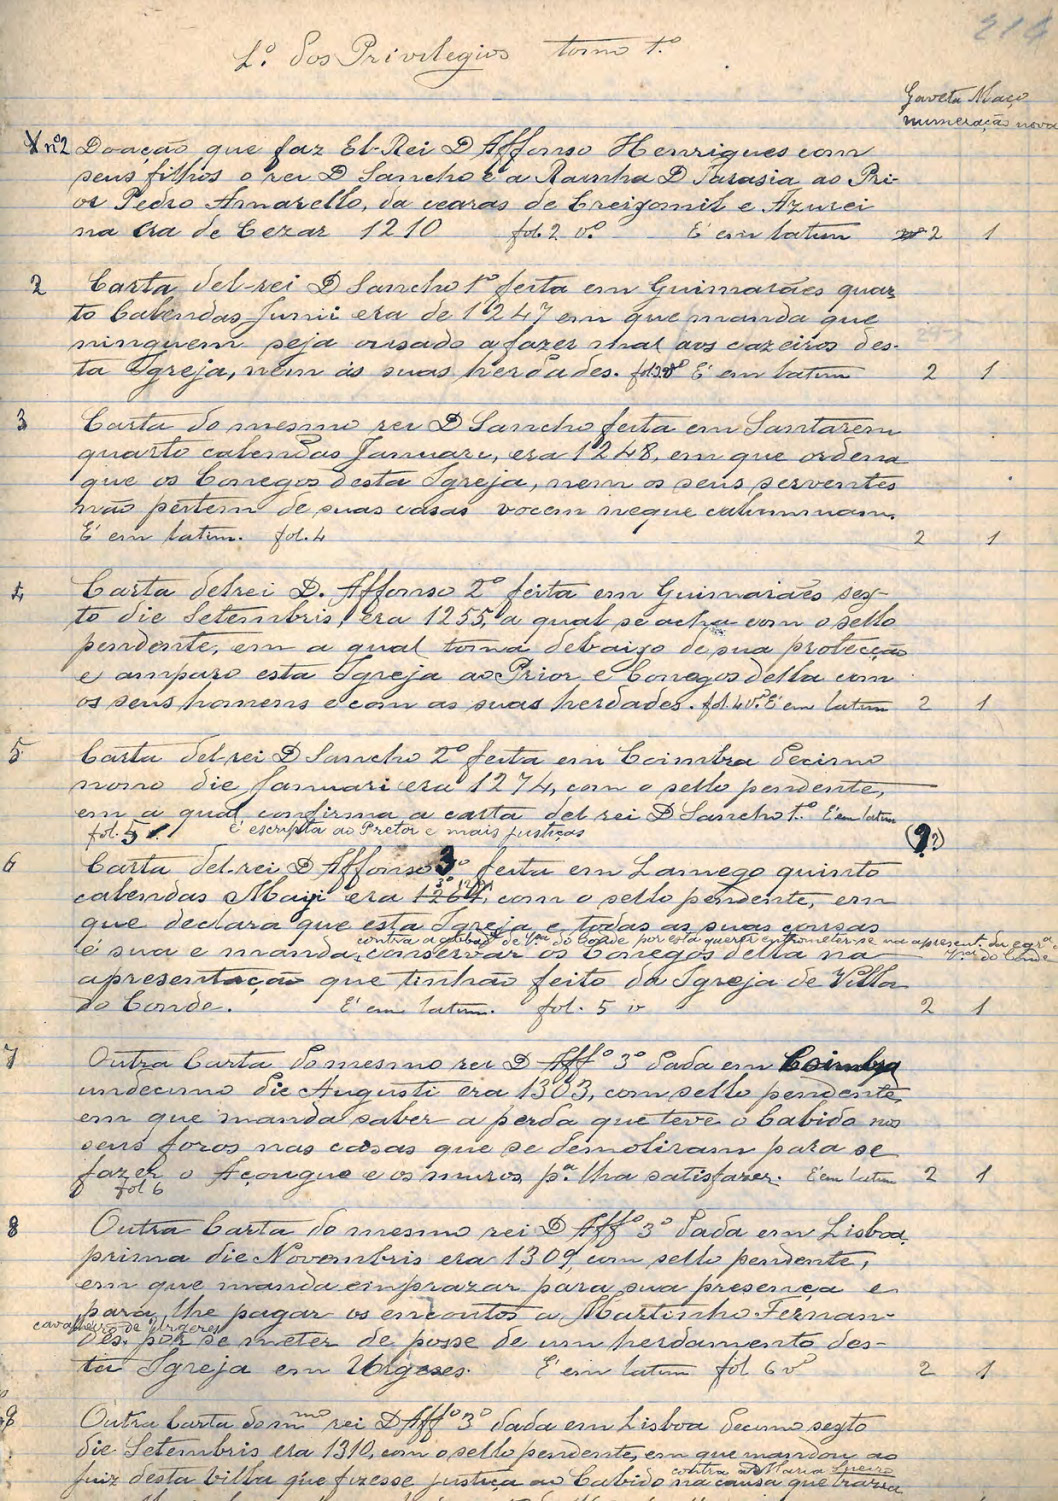 214
L.º dos Privilegios tomo 1.º
Gaveta Maço
numeração nova
nº2 Doação que faz El-Rei D Affonso Henriques com
seus filhos o rei D Sancho e a Rainha D Tarasia ao Pri-
or Pedro Amarello, da cearas de Creixomil e Azurei
na era de Cezar 1210 fol. 2 vº É em latim 2 1
2 Carta del-rei D Sancho 1º feita em Guimarães quar
to Calendas Junii era de 1247 em que manda que
ninguem seja ousado a fazer mal aos cazeiros des-
ta Igreja, nem ás suas herdades. fol 3 vº É em latim 2 1
3 Carta do mesmo rei D Sancho feita em Santarem
quarto calendas Januari, era 1248, em que ordena
que os Conegos desta Igreja, nem os seus serventes
não peitem de suas casas vocem neque calumniam.
É em latim. fol. 4 2 1
4 Carta delrei D. Affonso 2º feita em Guimarães sex-
to die Setembris, era 1255, a qual se acha com o sello
pendente, em a qual toma debaixo de sua protecção
e amparo esta Igreja ao Prior e Conegos della com
os seus homens e com as suas herdades. fol. 4 vº É em latim 2 1
5 Carta del-rei D Sancho 2º feita em Coimbra decimo
nono die Januari era 1274, com o sello pendente,
em a qual confirma a carta del rei D Sancho 1º É em latim
fol. 5 É escripta ao Pretor e mais justiças (?)
6 Carta del-rei D Affonso 3º feita em Lamego quinto
calendas Maji era 1264, com o sello pendente, em
que declara que esta Igreja e todas as suas cousas
contra a de Vª do Conde por esta querer entrometer-se na apresent. da egrª
é sua e manda conservar os Conegos della na Vª do Conde
apresentação que tinhão feito da Igreja de Villa
do Conde. É em latim. fol. 5 v 2 1
7 Outra Carta do mesmo rei D Affº 3º dada em Coimbra
undecimo die Augusti era 1303, com sello pendente,
em que manda saber a perda que teve o Cabido nos
seus foros nas casas que se demoliram para se
fazer o Açougue e os muros pª lha satisfazer. É em latim 2 1
fol 6
8 Outra Carta do mesmo rei D Affº 3º dada em Lisboa
prima die Novembris era 1309, com sello pendente,
em que manda emprazar para sua presença e
para lhe pagar os encoutos a Martinho Fernan-
cavalheiro de Urgezes
des, por se meter de posse de um herdamento des-
ta Igreja em Urgeses. É em latim fol 6 vº 2 1
9 Outra Carta do mmo rei D Affº 3º dada em Lisboa decimo sexto
die Setembris era 1310, com o sello pendente, em que mandou ao
contra a Maria
Juiz desta villa q'ue fizesse justiça ao Cabido na causa que trazia